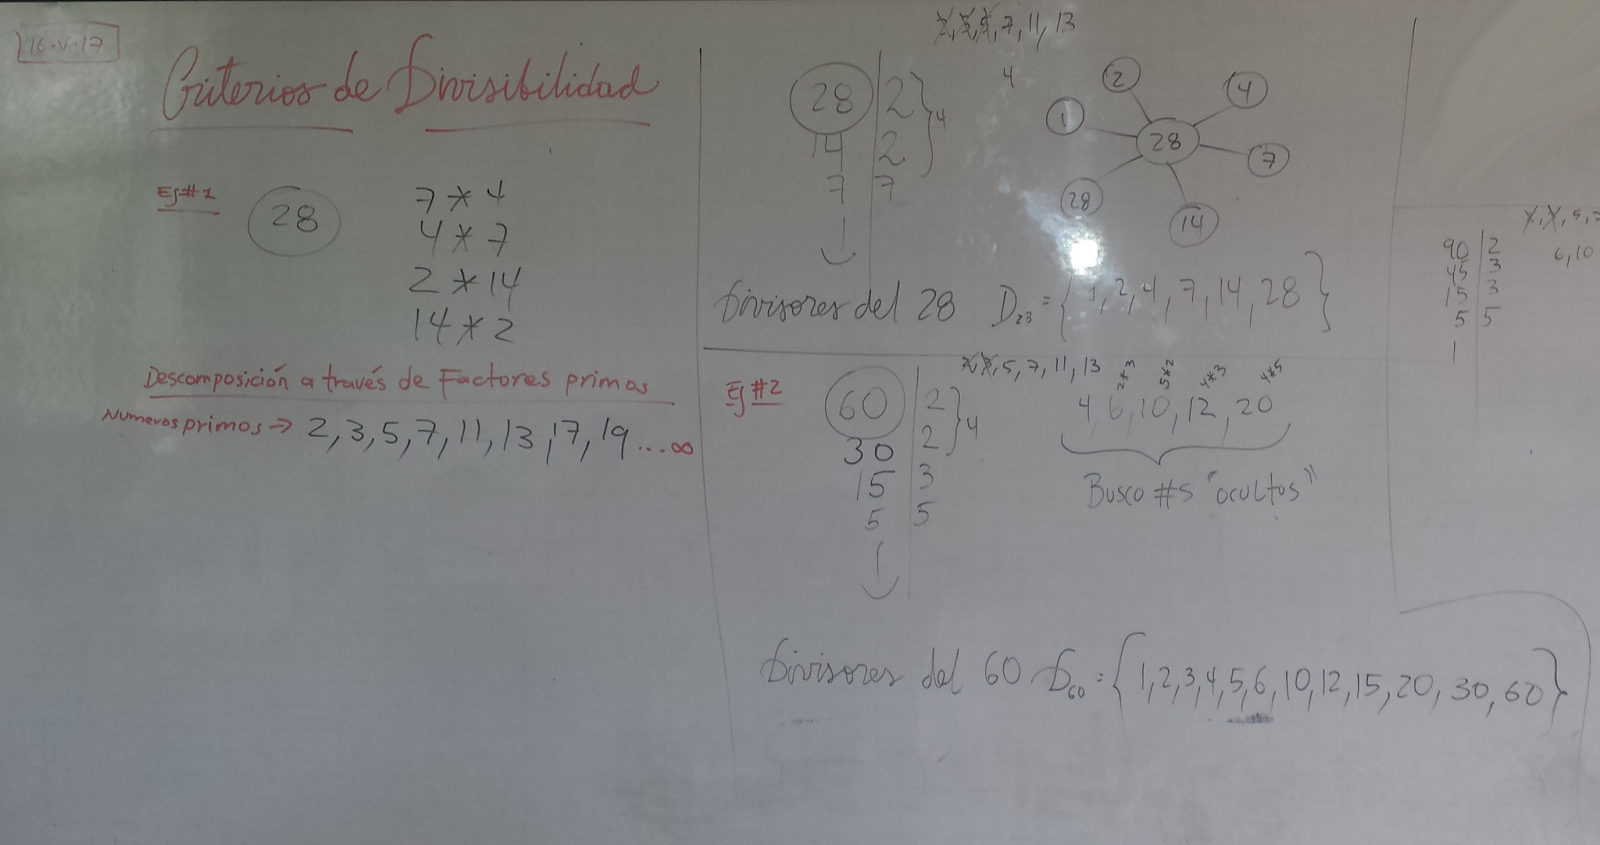 16.V.17
Criterios de Divisibilidad
Ej#1
28
7 * 4
4 * 7
2 * 14
14 * 2
Descomposición a través de Factores primos
Numeros primos → 2, 3, 5, 7, 11, 13, 17, 19 ... ∞
2, 3, 5, 7, 11, 13
4
28 | 2
14 | 2
7 | 7
4
28
1
2
4
7
14
28
Divisores del 28 D28 = {1, 2, 4, 7, 14, 28}
Ej #2
2, 3, 5, 7, 11, 13
60 | 2
30 | 2
15 | 3
5 | 5
4
2*3 5*2 4*3 4*5
4, 6, 10, 12, 20
Busco #s "ocultos"
Divisores del 60 D60 = {1, 2, 3, 4, 5, 6, 10, 12, 15, 20, 30, 60}
5, 7
6, 10
90 | 2
45 | 3
15 | 3
5 | 5
1